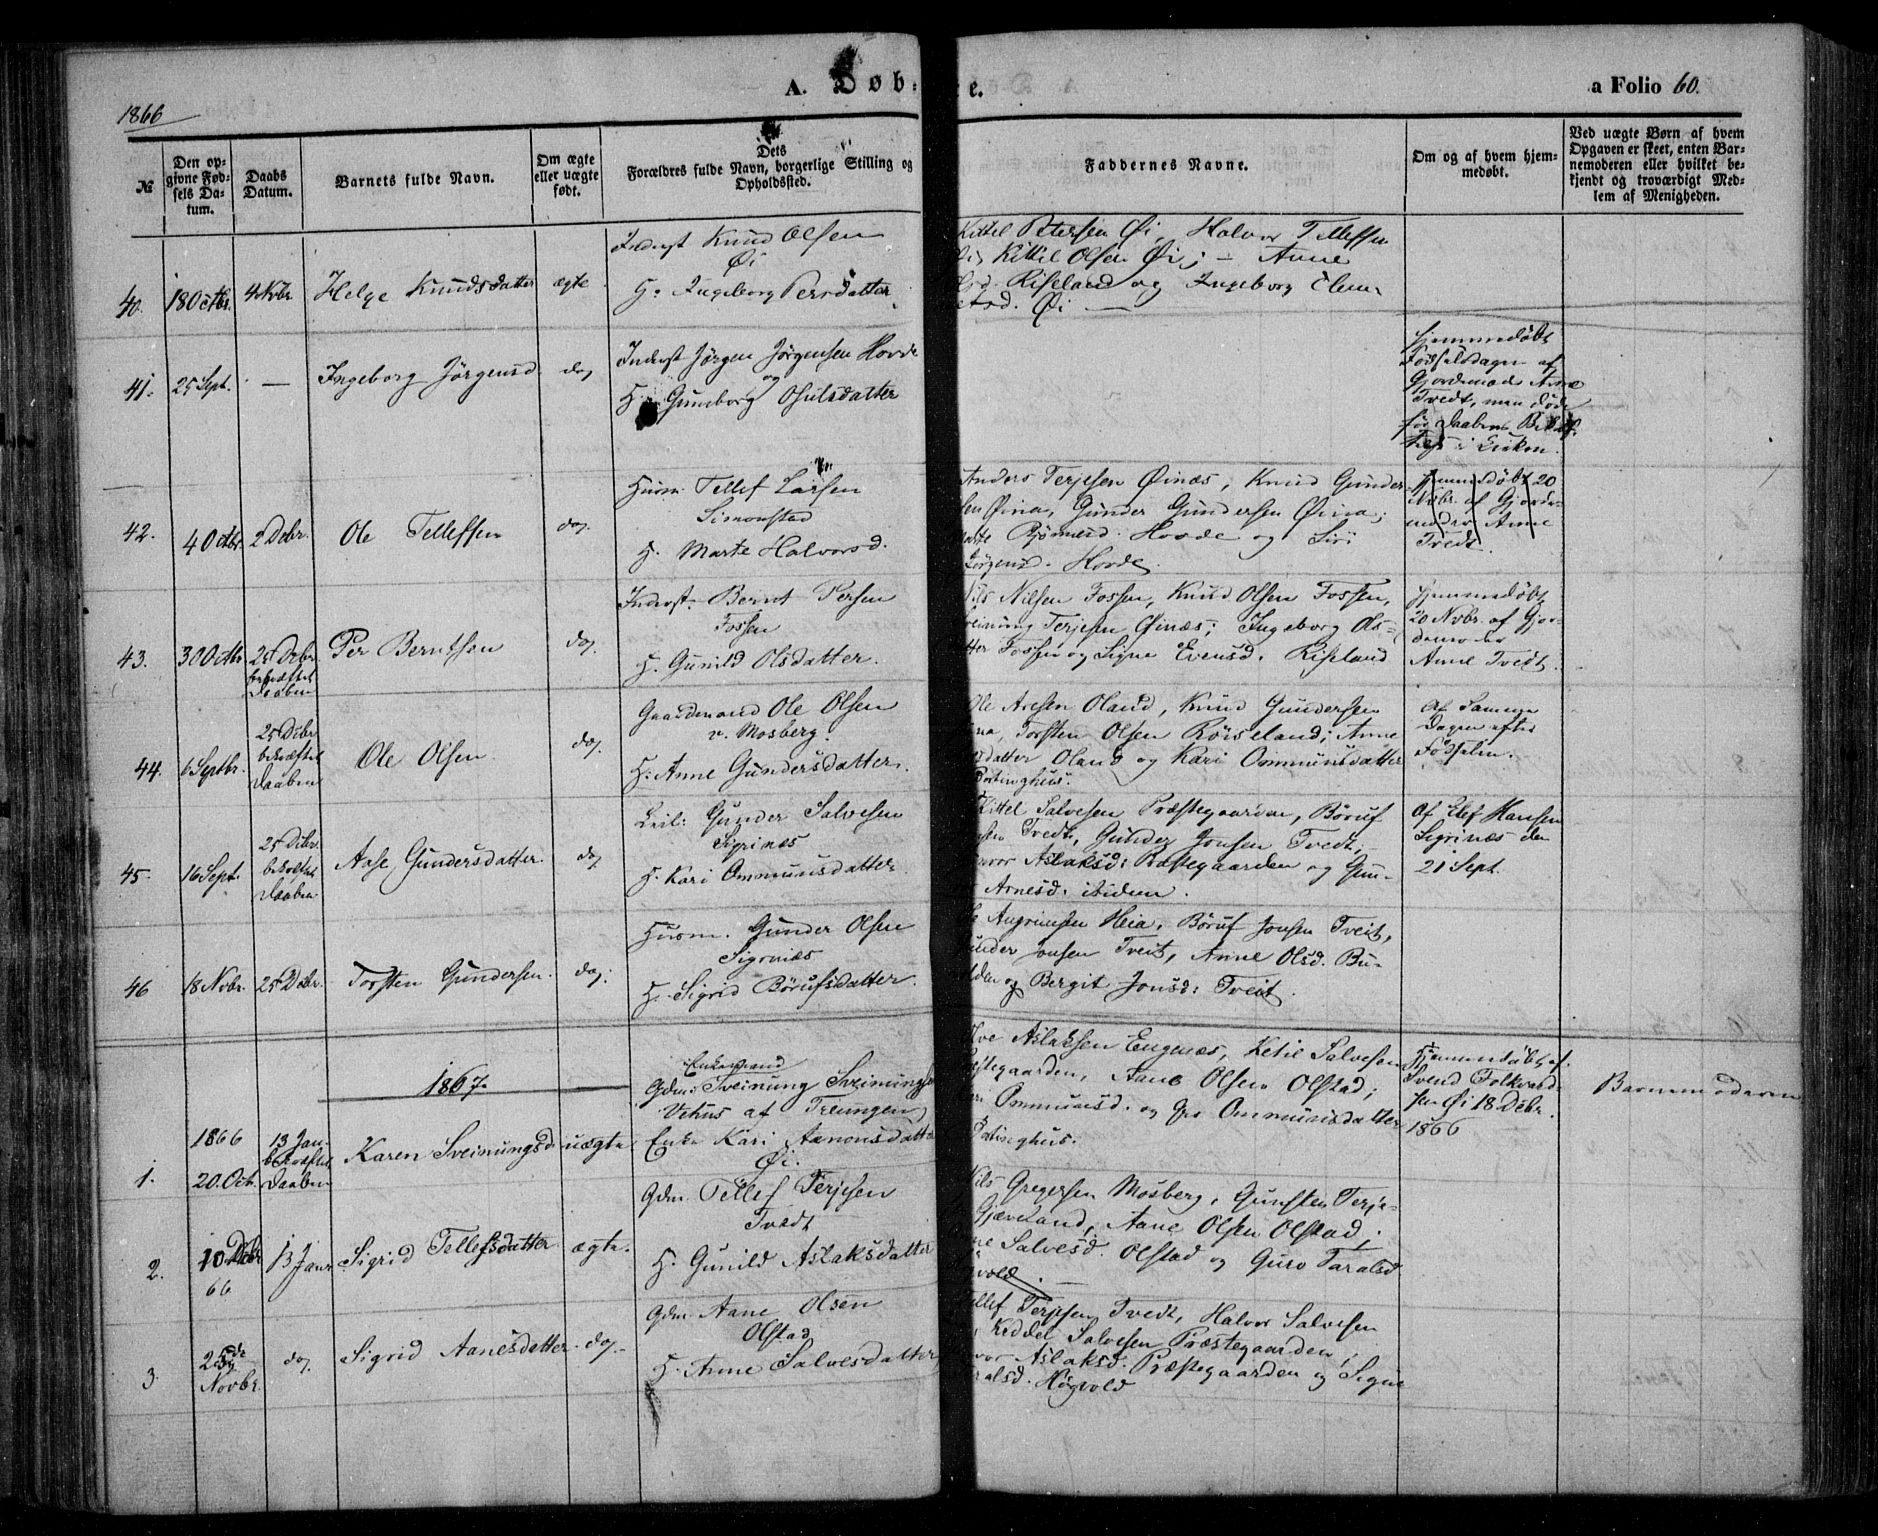 1866
A. Døb- e.
a Folio 60.
№
Den op-
givne Fød-
sels Da-
tum.
Daabs
Datum.
Barnets fulde Navn.
Om ægte
eller uægte
født.
Dets
Forældres fulde Navn, borgerlige Stilling og
Opholdssted.
Faddernes Navne.
Om og af hvem hjem-
medøbt.
Ved uægte Børn af hvem
Opgaven er skeet, enten Bar-
nemoderen eller hvilket be-
kjendt og troværdigt Med-
lem af Menigheden.
40. 18 Octbr. 4 Nvbr. Helge Knudsdatter ægte
Inderst Knud Olsen
Øi
H. Ingeborg Persdatter
Kittel Petersen Øi, Halvor Tellefsen
Kittil Olsen Øi; - Anne
Riseland og Ingeborg
Øi
41. 25 Sept. — Ingeborg Jørgensd do,
Inderst Jørgen Jørgensen Hovde
og
H. Guneborg Osulsdatter
Hjemmedøbt
Fødselsdagen af
Gjordemoder Anne
Tvedt, men døde
før Daabens
i Kirken.
42. 4 Octbr. 2 Debr. Ole Tellefsen do,
Husm. Tellef Larsen
Simonstad
H. Marte Halvorsd.
Anders Terjesen Øinæs, Knud Gunder
sen Øina, Gunder Gundersen Øina;
Hovde og Siri
Jørgensd. Hovde.
Hjemmedøbt 20
Nvbr. af Gjorde-
moder Anne
Tvedt.
43. 30 Octbr. 25 Debr. Per Berntsen do,
bekræftet
Daaben
Inderst. Bernt Persen
Fossen
H. Gunild Olsdatter.
Nils Nilsen Fossen, Knud Olsen Fossen,
Sveinung Terjesen Øinæs; Ingeborg Ols-
datter Fossen og Signe Evensd. Riseland
Hjemmedøbt
20 Nvbr. af Gjor-
demoder
Anne Tvedt.
44. 6 Septbr. 25 Debr. Ole Olsen do,
bekræftet
Daaben
Gaardmand Ole Olsen
v. Mosberg.
H. Anne Gundersdatter.
Ole Aresen Oland, Knud Gundersen
Øina, Torsten Olsen Röiseland; Anne
datter Oland og Kari Ommunsdatter
Bortinghus.
Af Samme
Dagen efter
Fødselen.
45. 16 Sept. 25 Debr. Aase Gundersdatter. do,
bekræftet
Daaben
Leil: Gunder Salvesen
Sigrinæs
H. Kari Ommunsdatter
Kittel Salvesen Præstegaarden, Böruf
Tvedt, Gunder Jonsen Tvedt,
Aslaksd: Præstegaarden og Gun-
Arnesd. ibidem.
Af Elef Hansen
Sigrinæs den
21 Sept.
46 18 Nvbr. 25 Debr. Torsten Gundersen. do:
Husm. Gunder Olsen
Sigrinæs
H. Sigrid Börufsdatter.
Angrimsen Heia, Böruf Jonsen Tveit,
Gunder Jonsen Tveit, Anne Olsd. Bu-
og Bergit Jonsd: Tveit.
1867.
1. 1866 20. Oct. 13 Jan. Karen Sveinungsd. uægte
bekræftet
Daaben
Enkemand
Gdm: Sveinung Sveinungsen
Vehus af Treungen
Enke Kari Aanonsdatter
Øi.
Aslaksen Engenæs, Ketil Salvesen
Præstegaarden, Aane Olsen Olstad;
Ommunsd. og Gro Ommunsdatter
Bortinghus.
Hjemmedøbt af
Svend Folkvard-
sen Øi 18 Debr.
1866
Barnemoderen
2. 10 Debr 66 13 Janr Sigrid Tellefsdatter ægte.
Gdm. Tellef Terjesen
Tvedt
H. Gunild Aslaksdatter
Nils Gregersen Mosberg, Gunsten Terje-
Gjæveland, Aane Olsen Olstad;
Salvesd. Olstad og Guro Taralsd.
3. 25de Novbr. do, Sigrid Aanesdatter. do,
Gdm. Aane Olsen
Olstad
H. Anne Salvesdatter
Tellef Terjesen Tvedt, Halvor Salvesen
Keddel Salvesen Præstegaarden,
Aslaksd. Præstegaarden og Signe
Taralsd. Høgvold